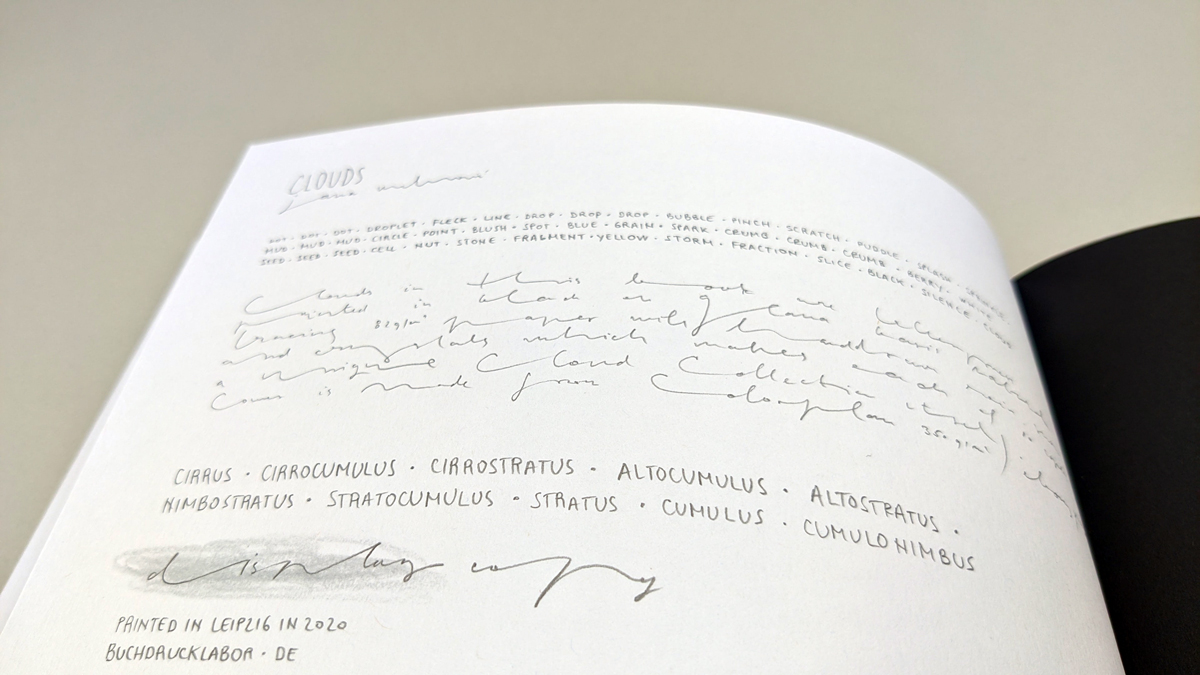 CLOUDS
DOT · DOT · DOT · DROPLET · FLECK · LINE · DROP · DROP · DROP · BUBBLE · PINCH · SCRATCH · PUDDLE · SPLASH ·
MUD · MUD · MUD · CIRCLE · POINT · BLUSH · SPOT · BLUE · GRAIN · SPARK · CRUMB · CRUMB · CRUMB · BERRY · WHITE ·
SEED · SEED · SEED · CELL · NUT · STONE · FRAGMENT · YELLOW · STORM · FRACTION · SLICE · BLACK · SILENCE · CLOUD
Clouds in this book are
printed in black on
tracing 82g/m² paper with
and crystals which makes each
a unique Cloud Collection itself)
Cover is made from Colorplan 350g/m²
CIRRUS · CIRROCUMULUS · CIRROSTRATUS · ALTOCUMULUS · ALTOSTRATUS ·
NIMBOSTRATUS · STRATOCUMULUS · STRATUS · CUMULUS · CUMULONIMBUS
display copy
PRINTED IN LEIPZIG IN 2020
BUCHDRUCKLABOR · DE